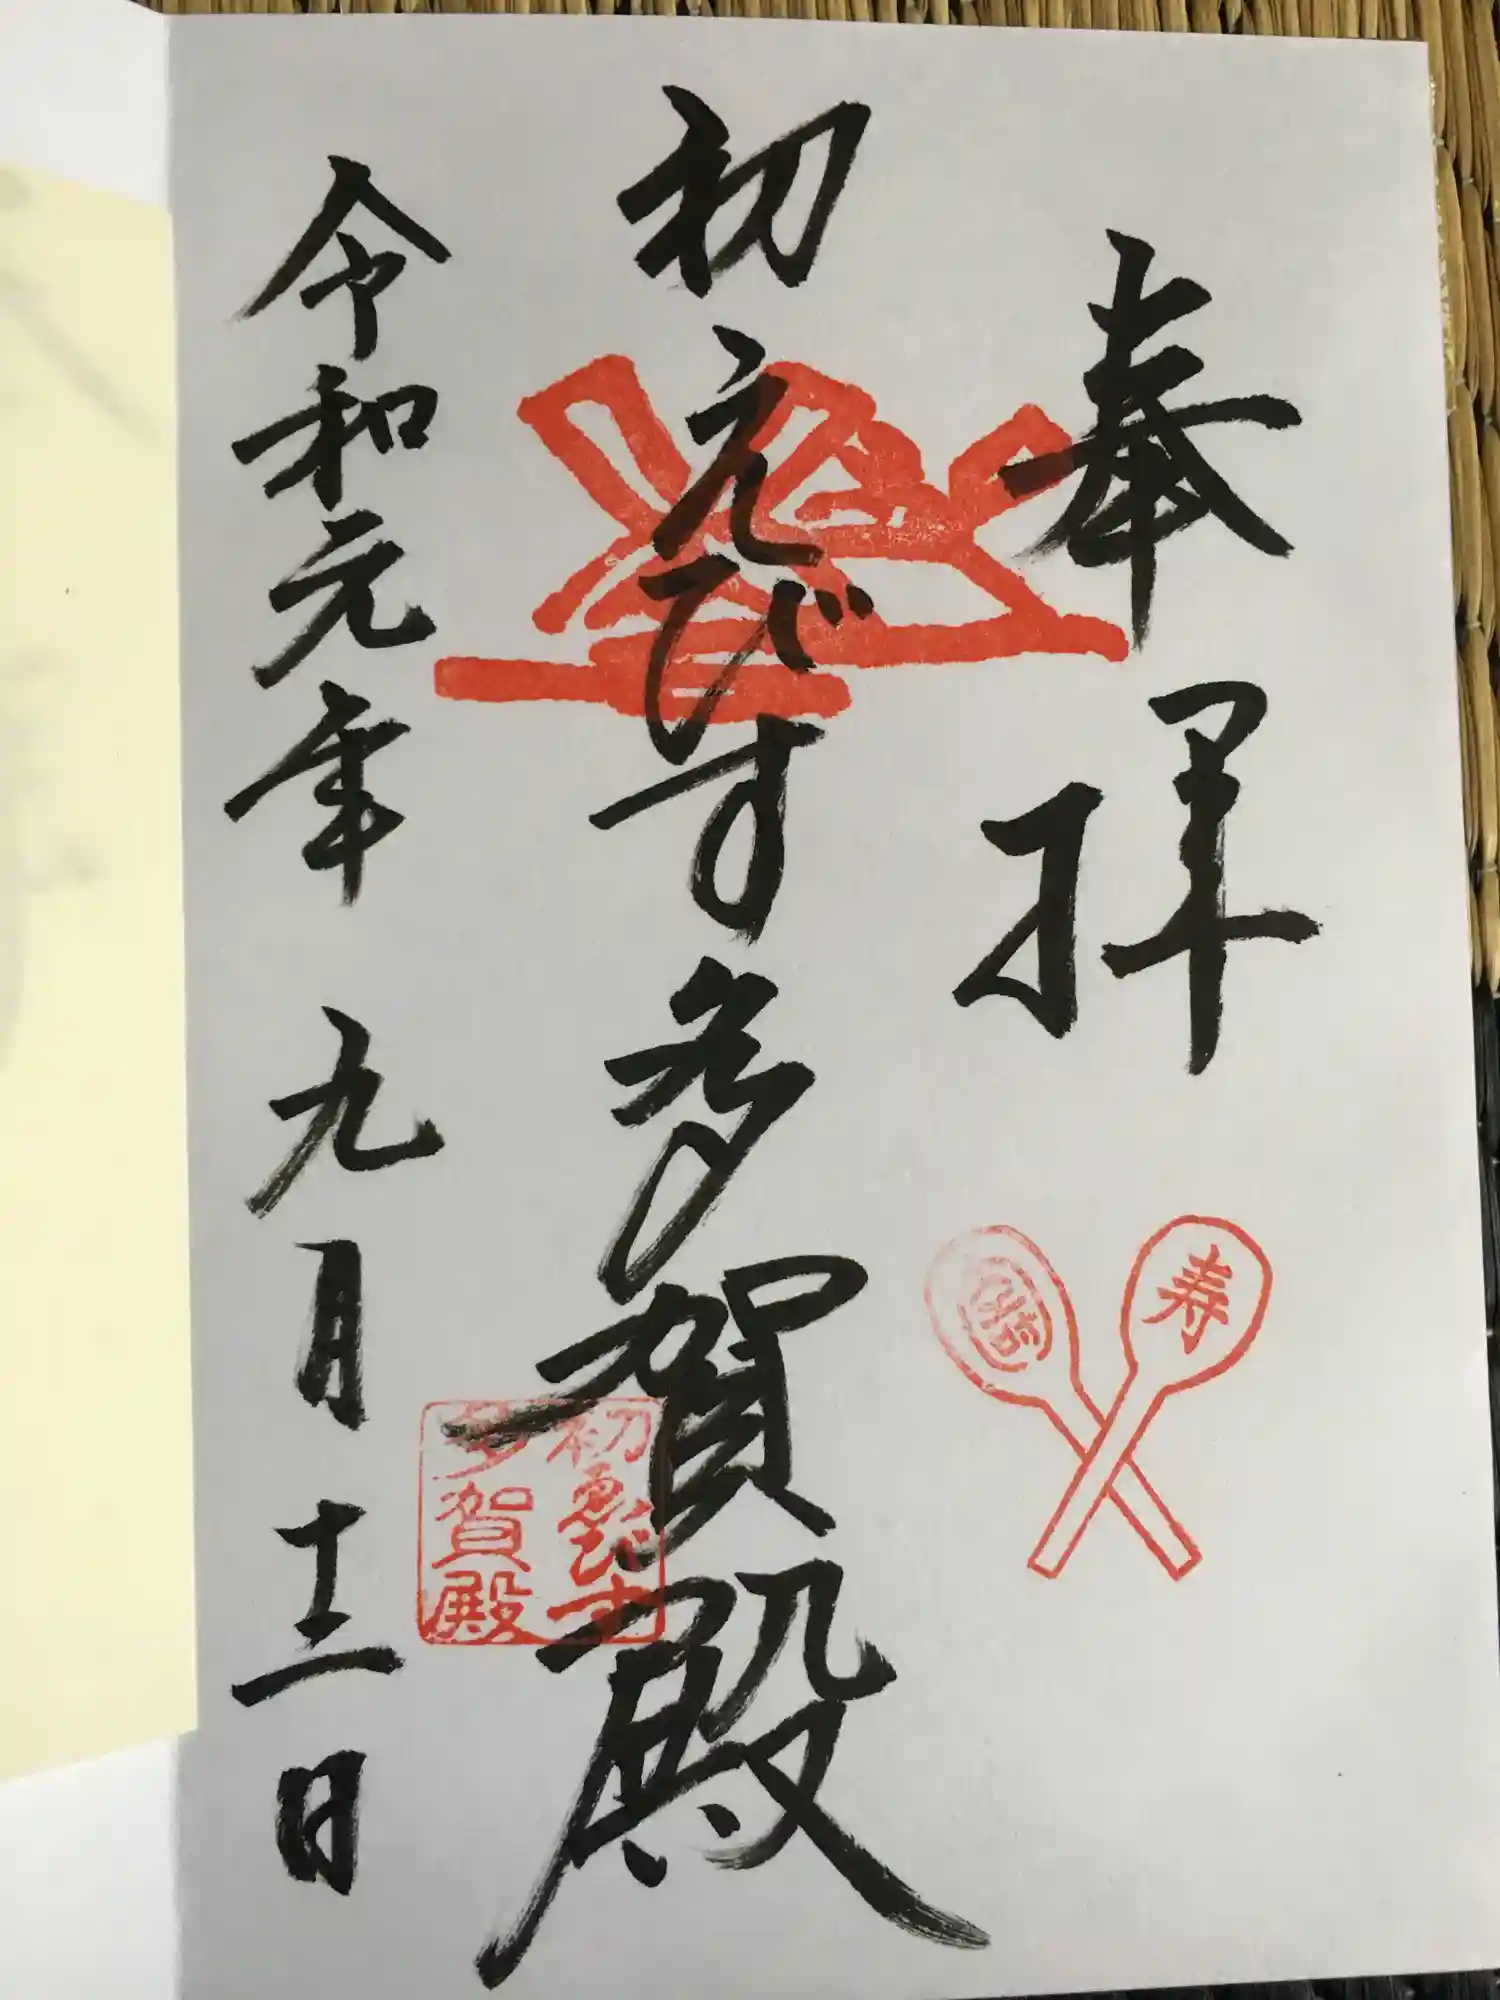 奉拝
寿
初えびす多賀殿
初ゑびす
多賀殿
令和元年 九月 十二日